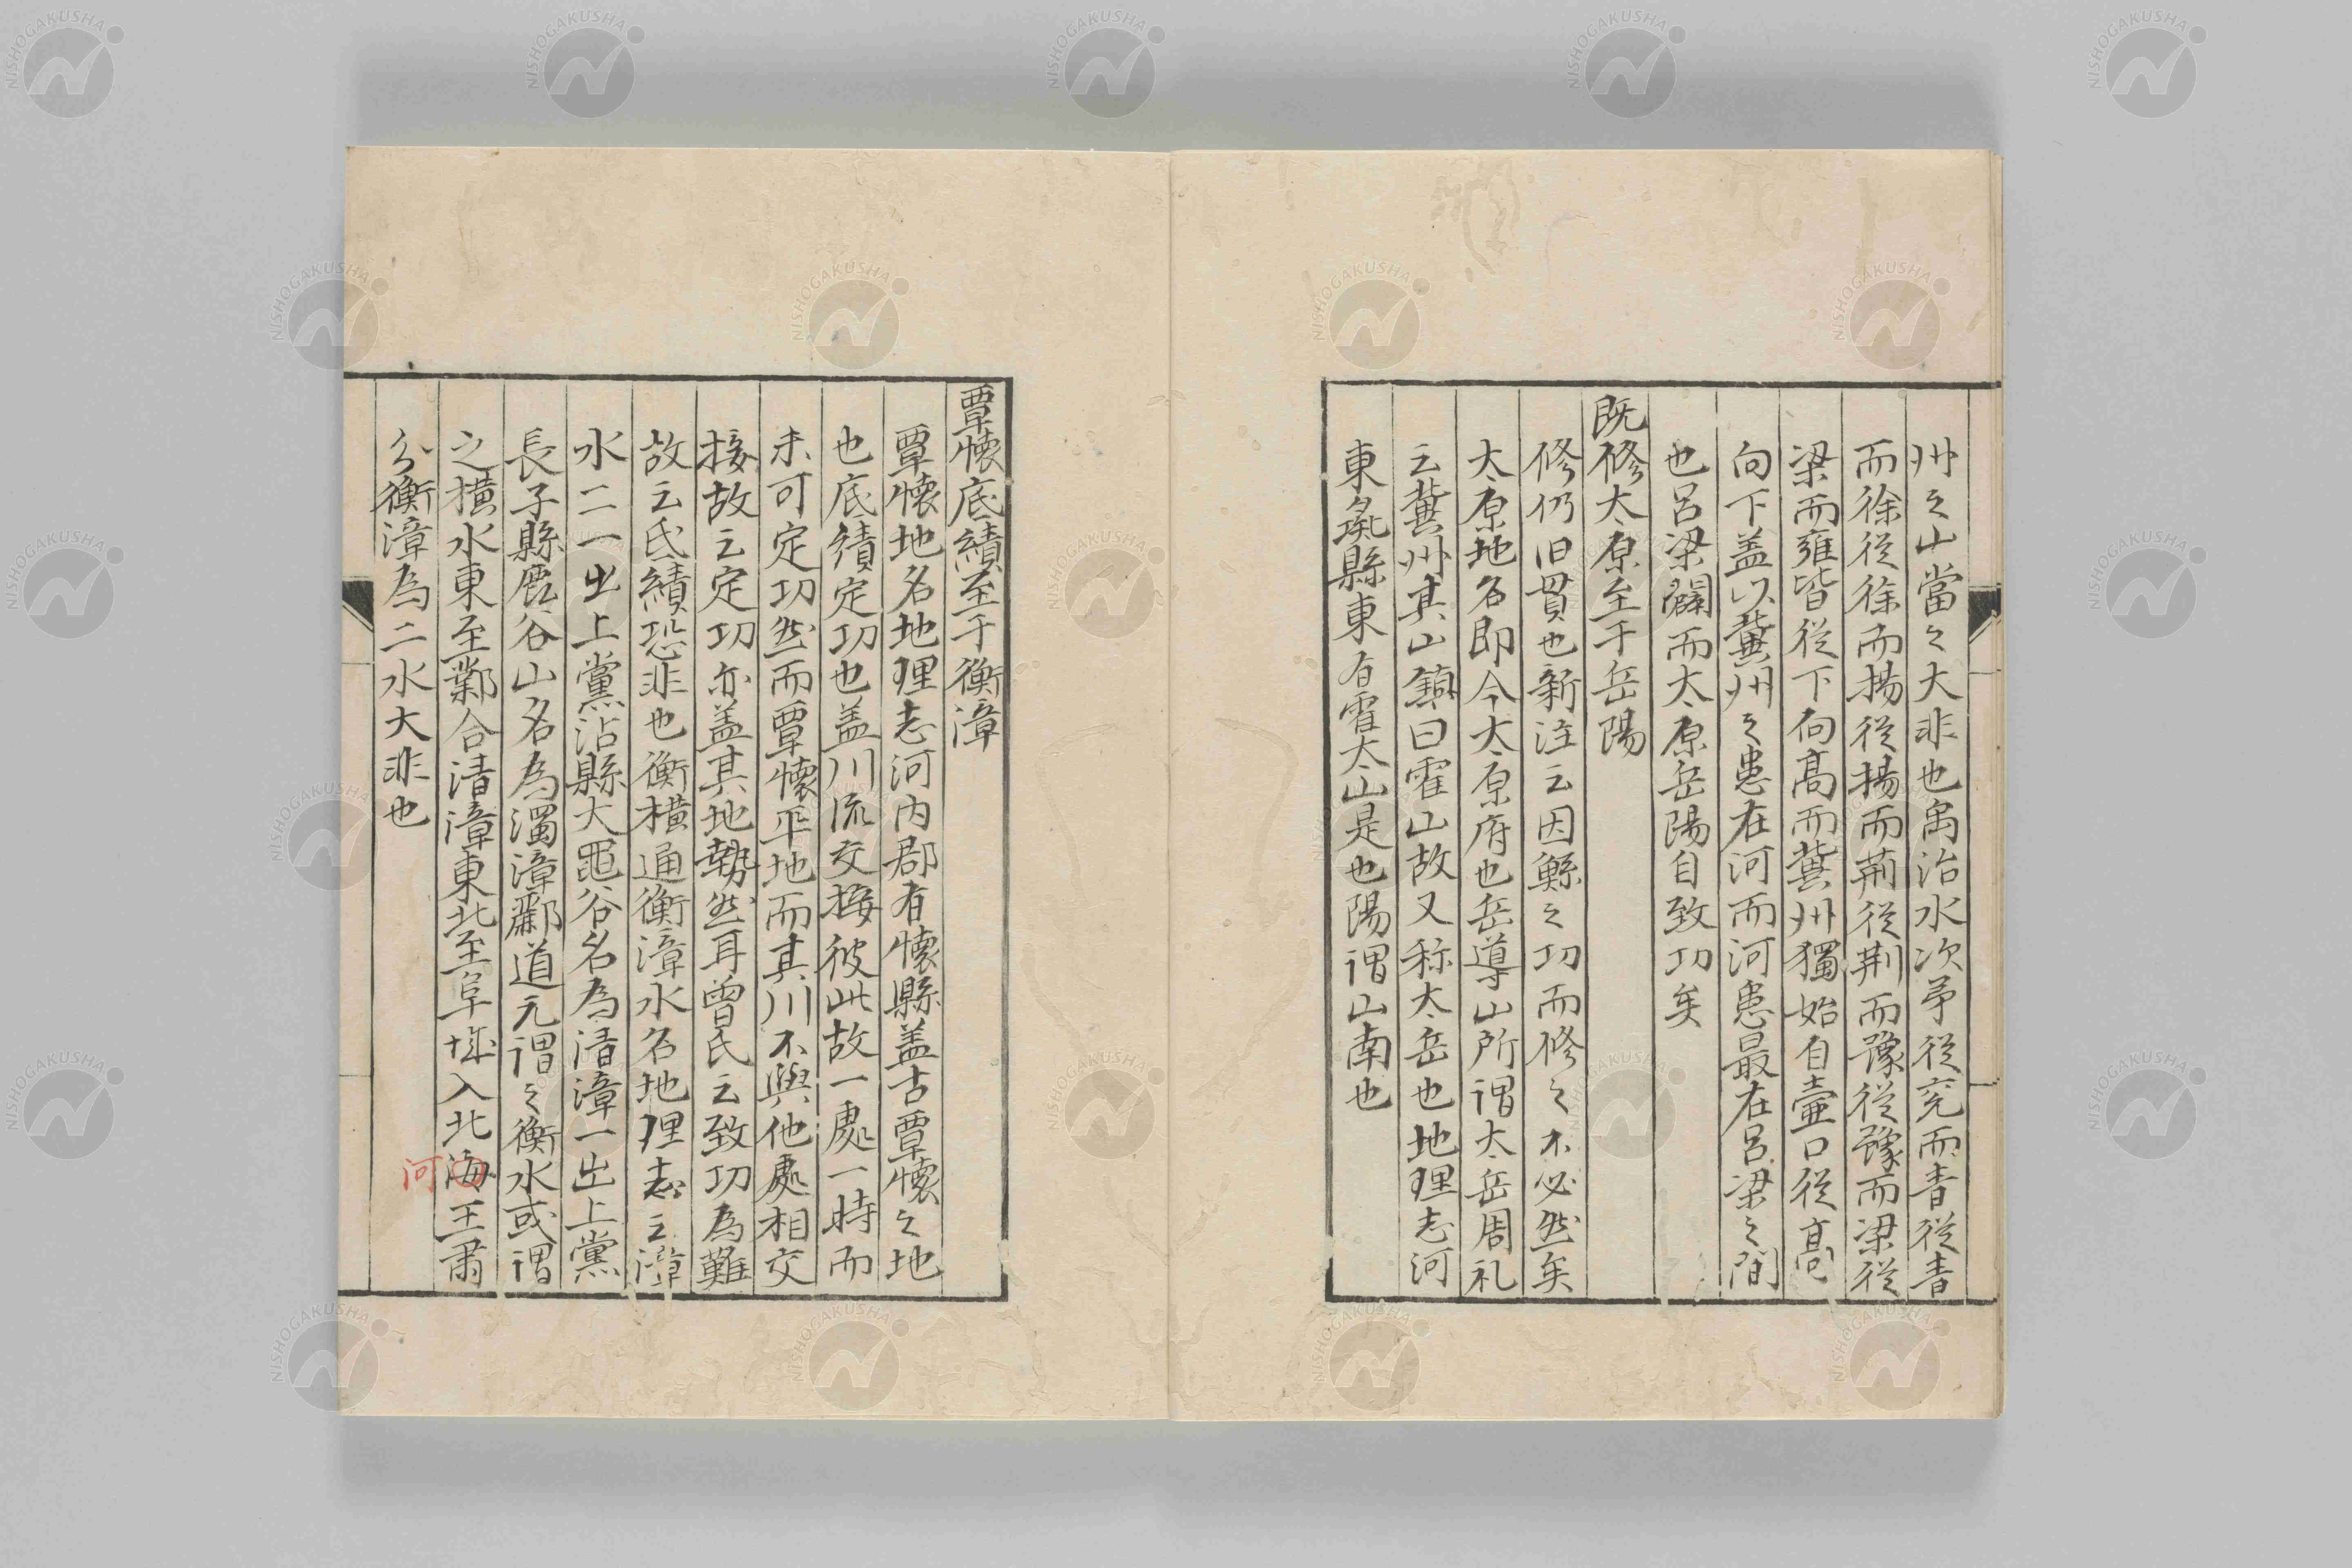 州之山當之大非也禹治水次苐從兖而青從青
而徐從徐而揚從揚而荊從荊而豫從豫而梁從
梁而雍皆從下向髙而冀州獨始自壷口從髙
向下盖以冀州之患在河而河患最在呂梁之間
也呂梁闢而太原岳陽自致功矣
既修太原至于岳陽
修仍旧貫也新注云因鯀之功而修之不必然矣
太原地名即今太原府也岳導山所謂太岳周礼
云冀州其山鎮曰霍山故又称太岳也地理志河
東彘縣東有霍太山是也陽謂山南也
覃懷底績至于衡漳
覃懷地名地理志河内郡有懷縣盖古覃懷之地
也底績定功也盖川流交接彼此故一處一時而
未可定功然而覃懷平地而其川不與他處相交
接故云定功亦盖其地勢然耳曾氏云致功為難
故云底績恐非也衡橫通衡漳水名地理志云漳
水二一出上黨沾縣大黽谷名為清漳一出上黨
長子縣鹿谷山名為濁漳酈道元謂之衡水或謂
之橫水東至鄴合清漳東北至阜城入北海王肅
河
分衡漳為二水大非也